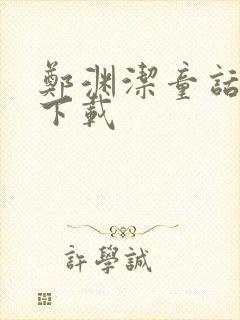 鄭渊潔童話
下載
許學誠